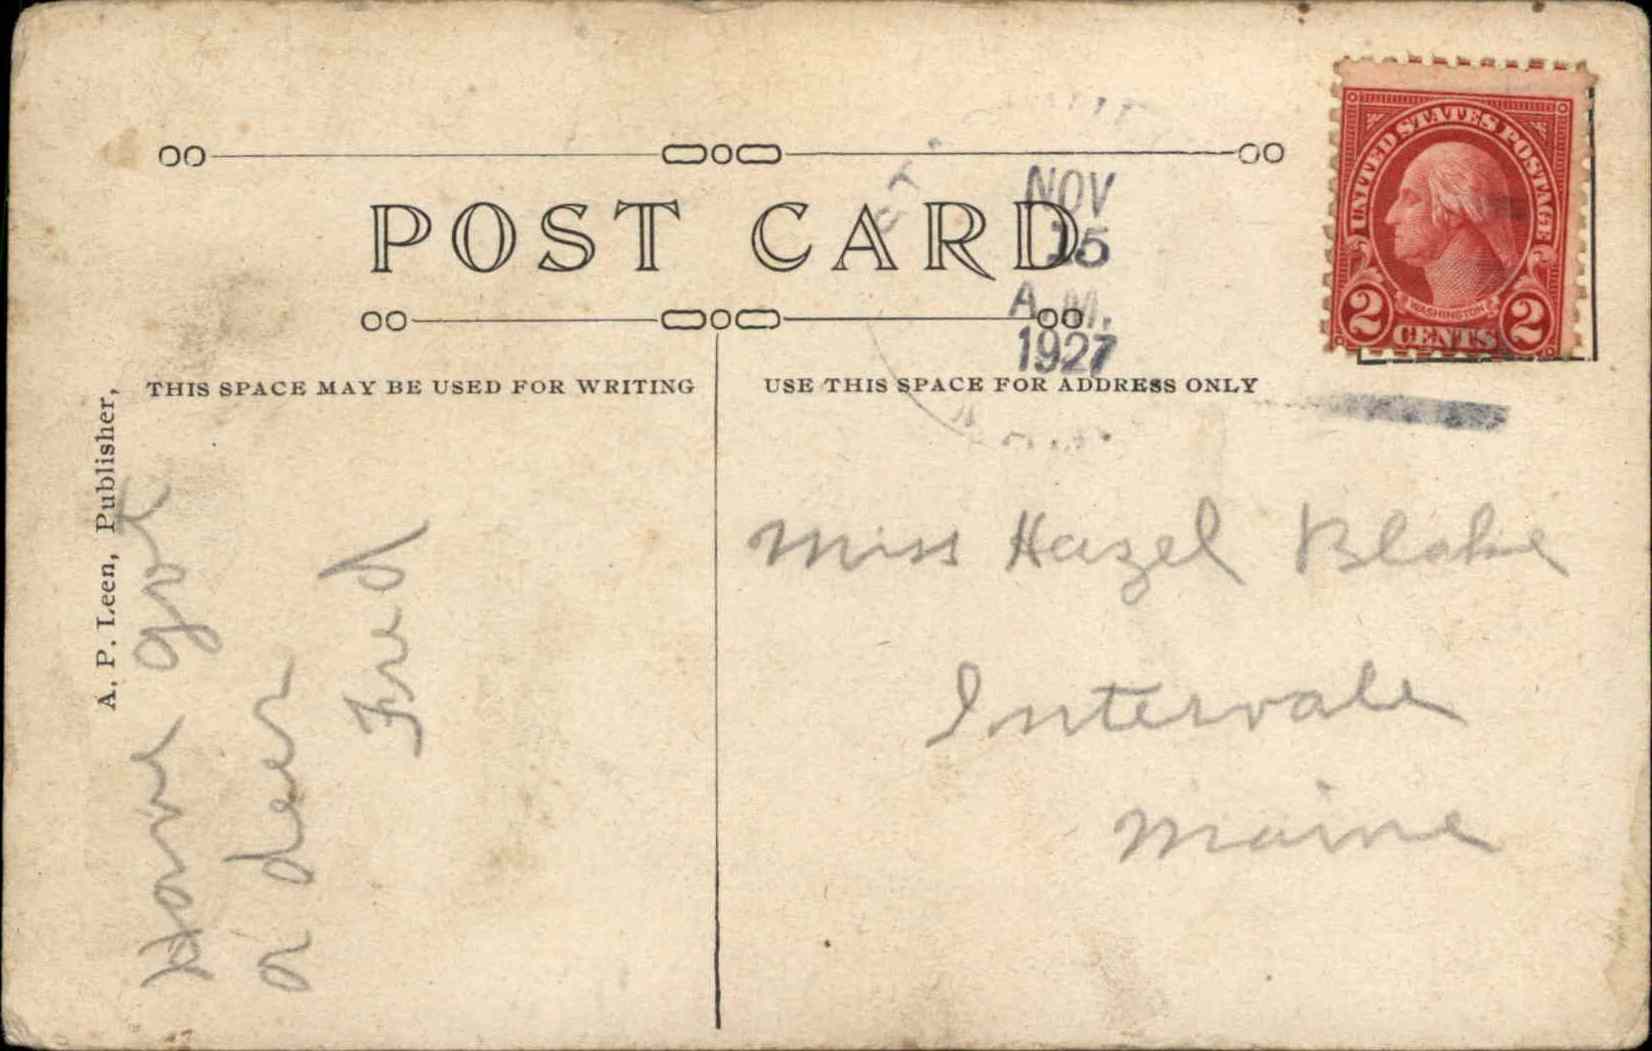 POST CARD
NOV
15
A.M.
1927
UNITED STATES POSTAGE
WASHINGTON
2 CENTS 2
THIS SPACE MAY BE USED FOR WRITING
USE THIS SPACE FOR ADDRESS ONLY
A. P. Leen, Publisher,
Have got
a deer
Fred
Miss Hazel Blake
Intervale
Maine